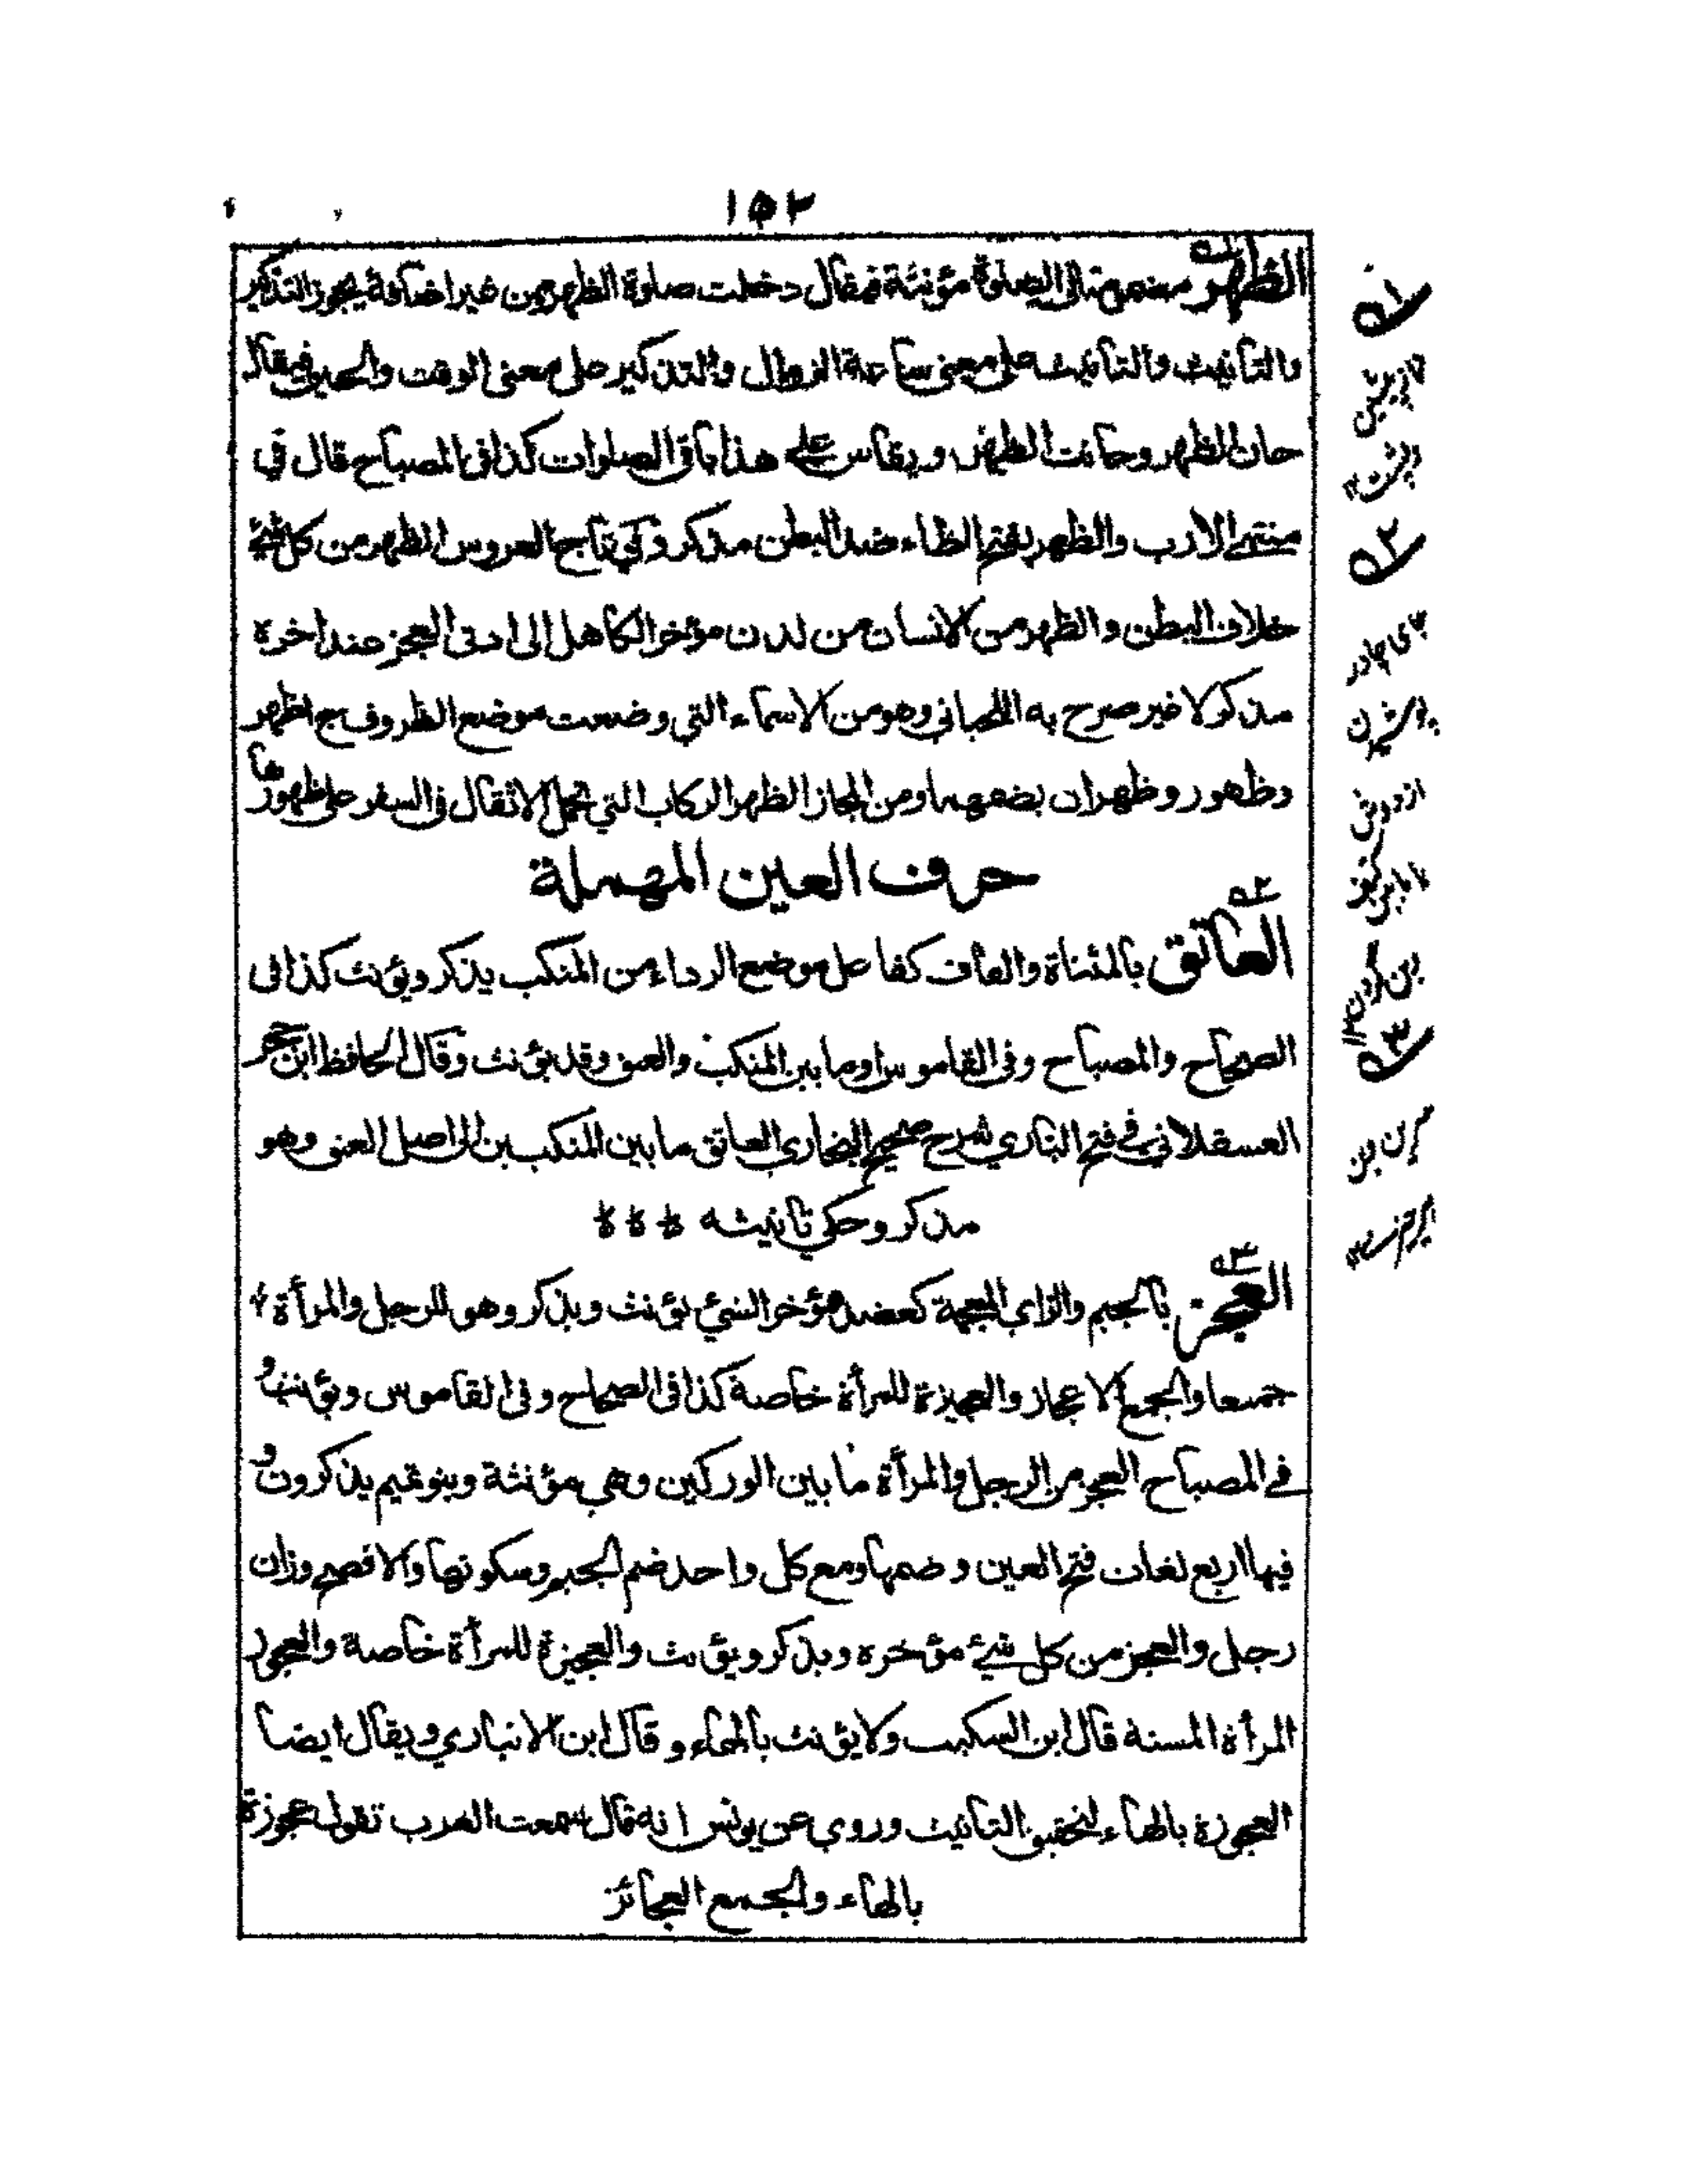 ١٥٢
الظهر مضموما الى الصلوة مؤنثة فيقال دخلت صلوة الظهر ومن غير اضافة يجوز التذكير
والتأنيث والتأنيث على معنى ساعة الزوال والتذكير على معنى الوقت والحين فيقال
حان الظهر وحانت الظهر ويقاس على هذا باقي الصلوات كذا في المصباح قال في
منتهى الارب والظهر بفتح الظاء ضد البطن مذكر وفي تاج العروس الظهر من كل شئ
خلاف البطن والظهر من الانسان من لدن مؤخر الكاهل الى ادنى العجز عند اخره
مذكر لا غير صرح به اللحياني وهو من الاسماء التي وضعت موضع الظروف ج اظهر
وظهور وظهران بضمهما ومن المجاز الظهر الركاب التي تحمل الاثقال في السفر على ظهورها
حرف العين المهملة
العاتق بالمثناة والقاف كفاعل موضع الرداء من المنكب يذكر ويؤنث كذا في
الصحاح والمصباح وفي القاموس او ما بين المنكب والعنق وقد يؤنث وقال الحافظ ابن حجر
العسقلاني في فتح الباري شرح صحيح البخاري العاتق ما بين المنكبين الى اصل العنق وهو
مذكر وحكي تانيثه
العجز بالجيم والزاي المعجمة كعضد مؤخر الشئ يؤنث ويذكر وهو للرجل والمرأة
جمعا والجمع الاعجاز والعجيزة للمرأة خاصة كذا في الصحاح وفي القاموس ويؤنث و
في المصباح العجز من الرجل والمرأة ما بين الوركين وهي مؤنثة وبنو تميم يذكرون و
فيها اربع لغات فتح العين وضمها ومع كل واحد ضم الجيم وسكونها والافصح وزان
رجل والعجز من كل شئ مؤخره ويذكر ويؤنث والعجيزة للمرأة خاصة والعجوز
المرأة المسنة قال ابن السكيت ولا يؤنث بالهاء وقال ابن الانباري ويقال ايضا
العجوزة بالهاء لتحقيق التأنيث وروي عن يونس انه قال سمعت العرب تقول عجوزة
بالهاء والجمع العجائز
١
٢
جای چادر
از دوش
بن گردن
٣
سرین